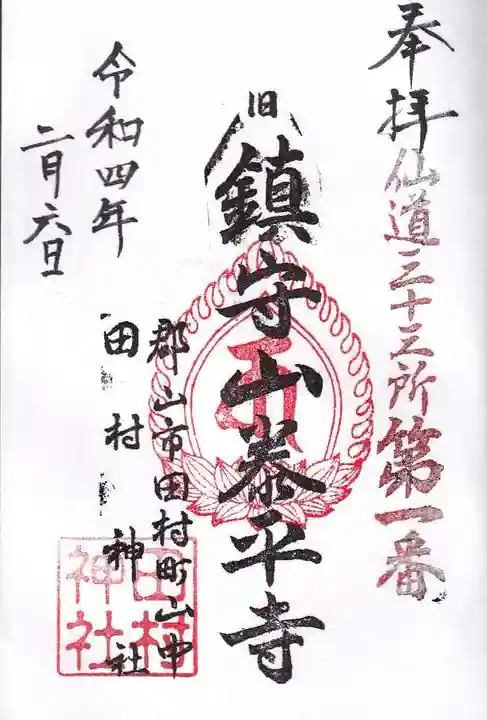 奉拝
仙道三十三所第一番
旧
鎮守山泰平寺
郡山市田村町山中
田村神社
田村
神社
令和四年
二月六日